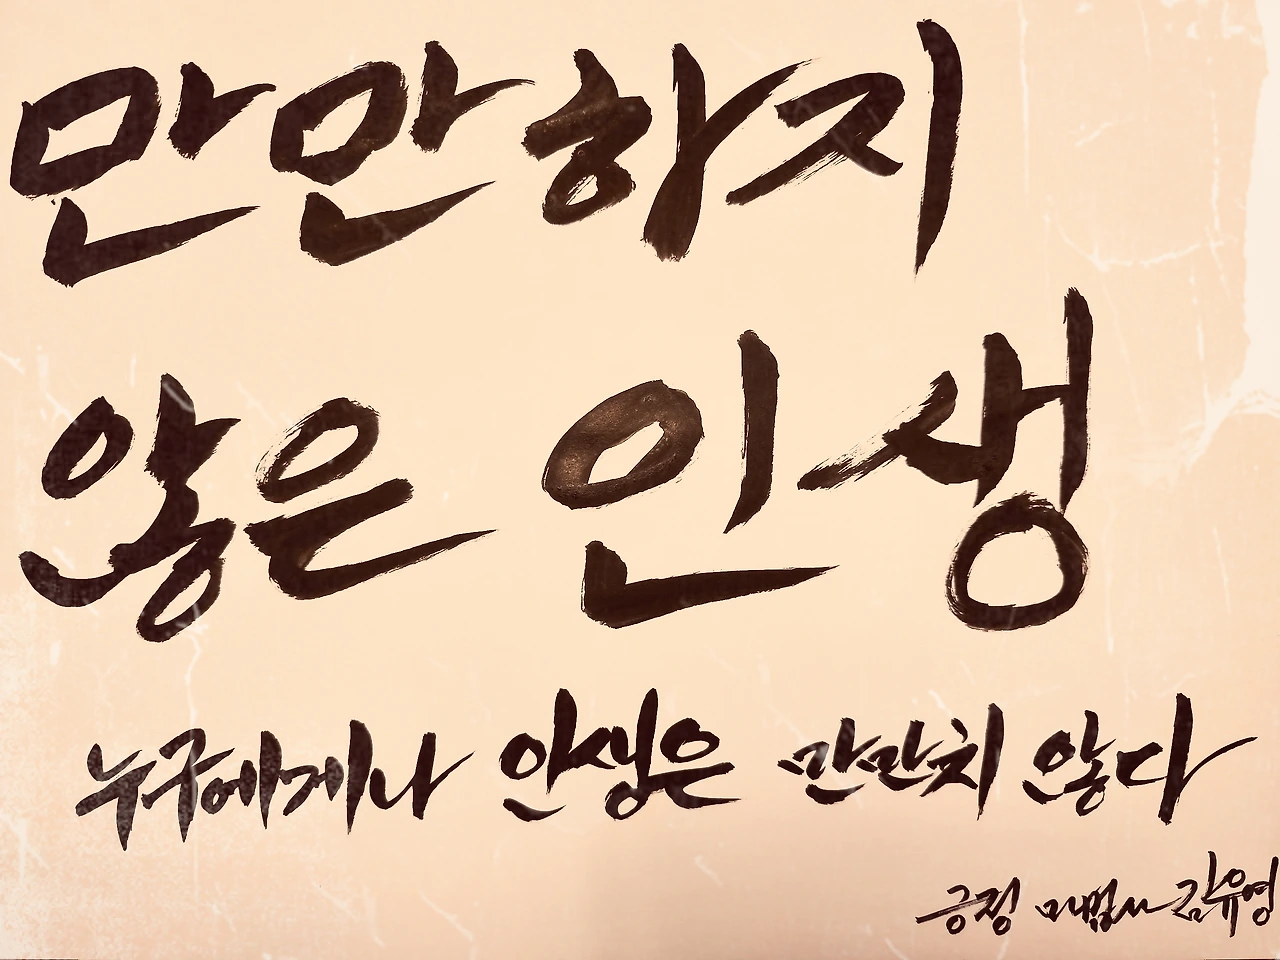 만만하지
않은 인생
누구에게나 인생은 만만치 않다
긍정 마법사 김유영